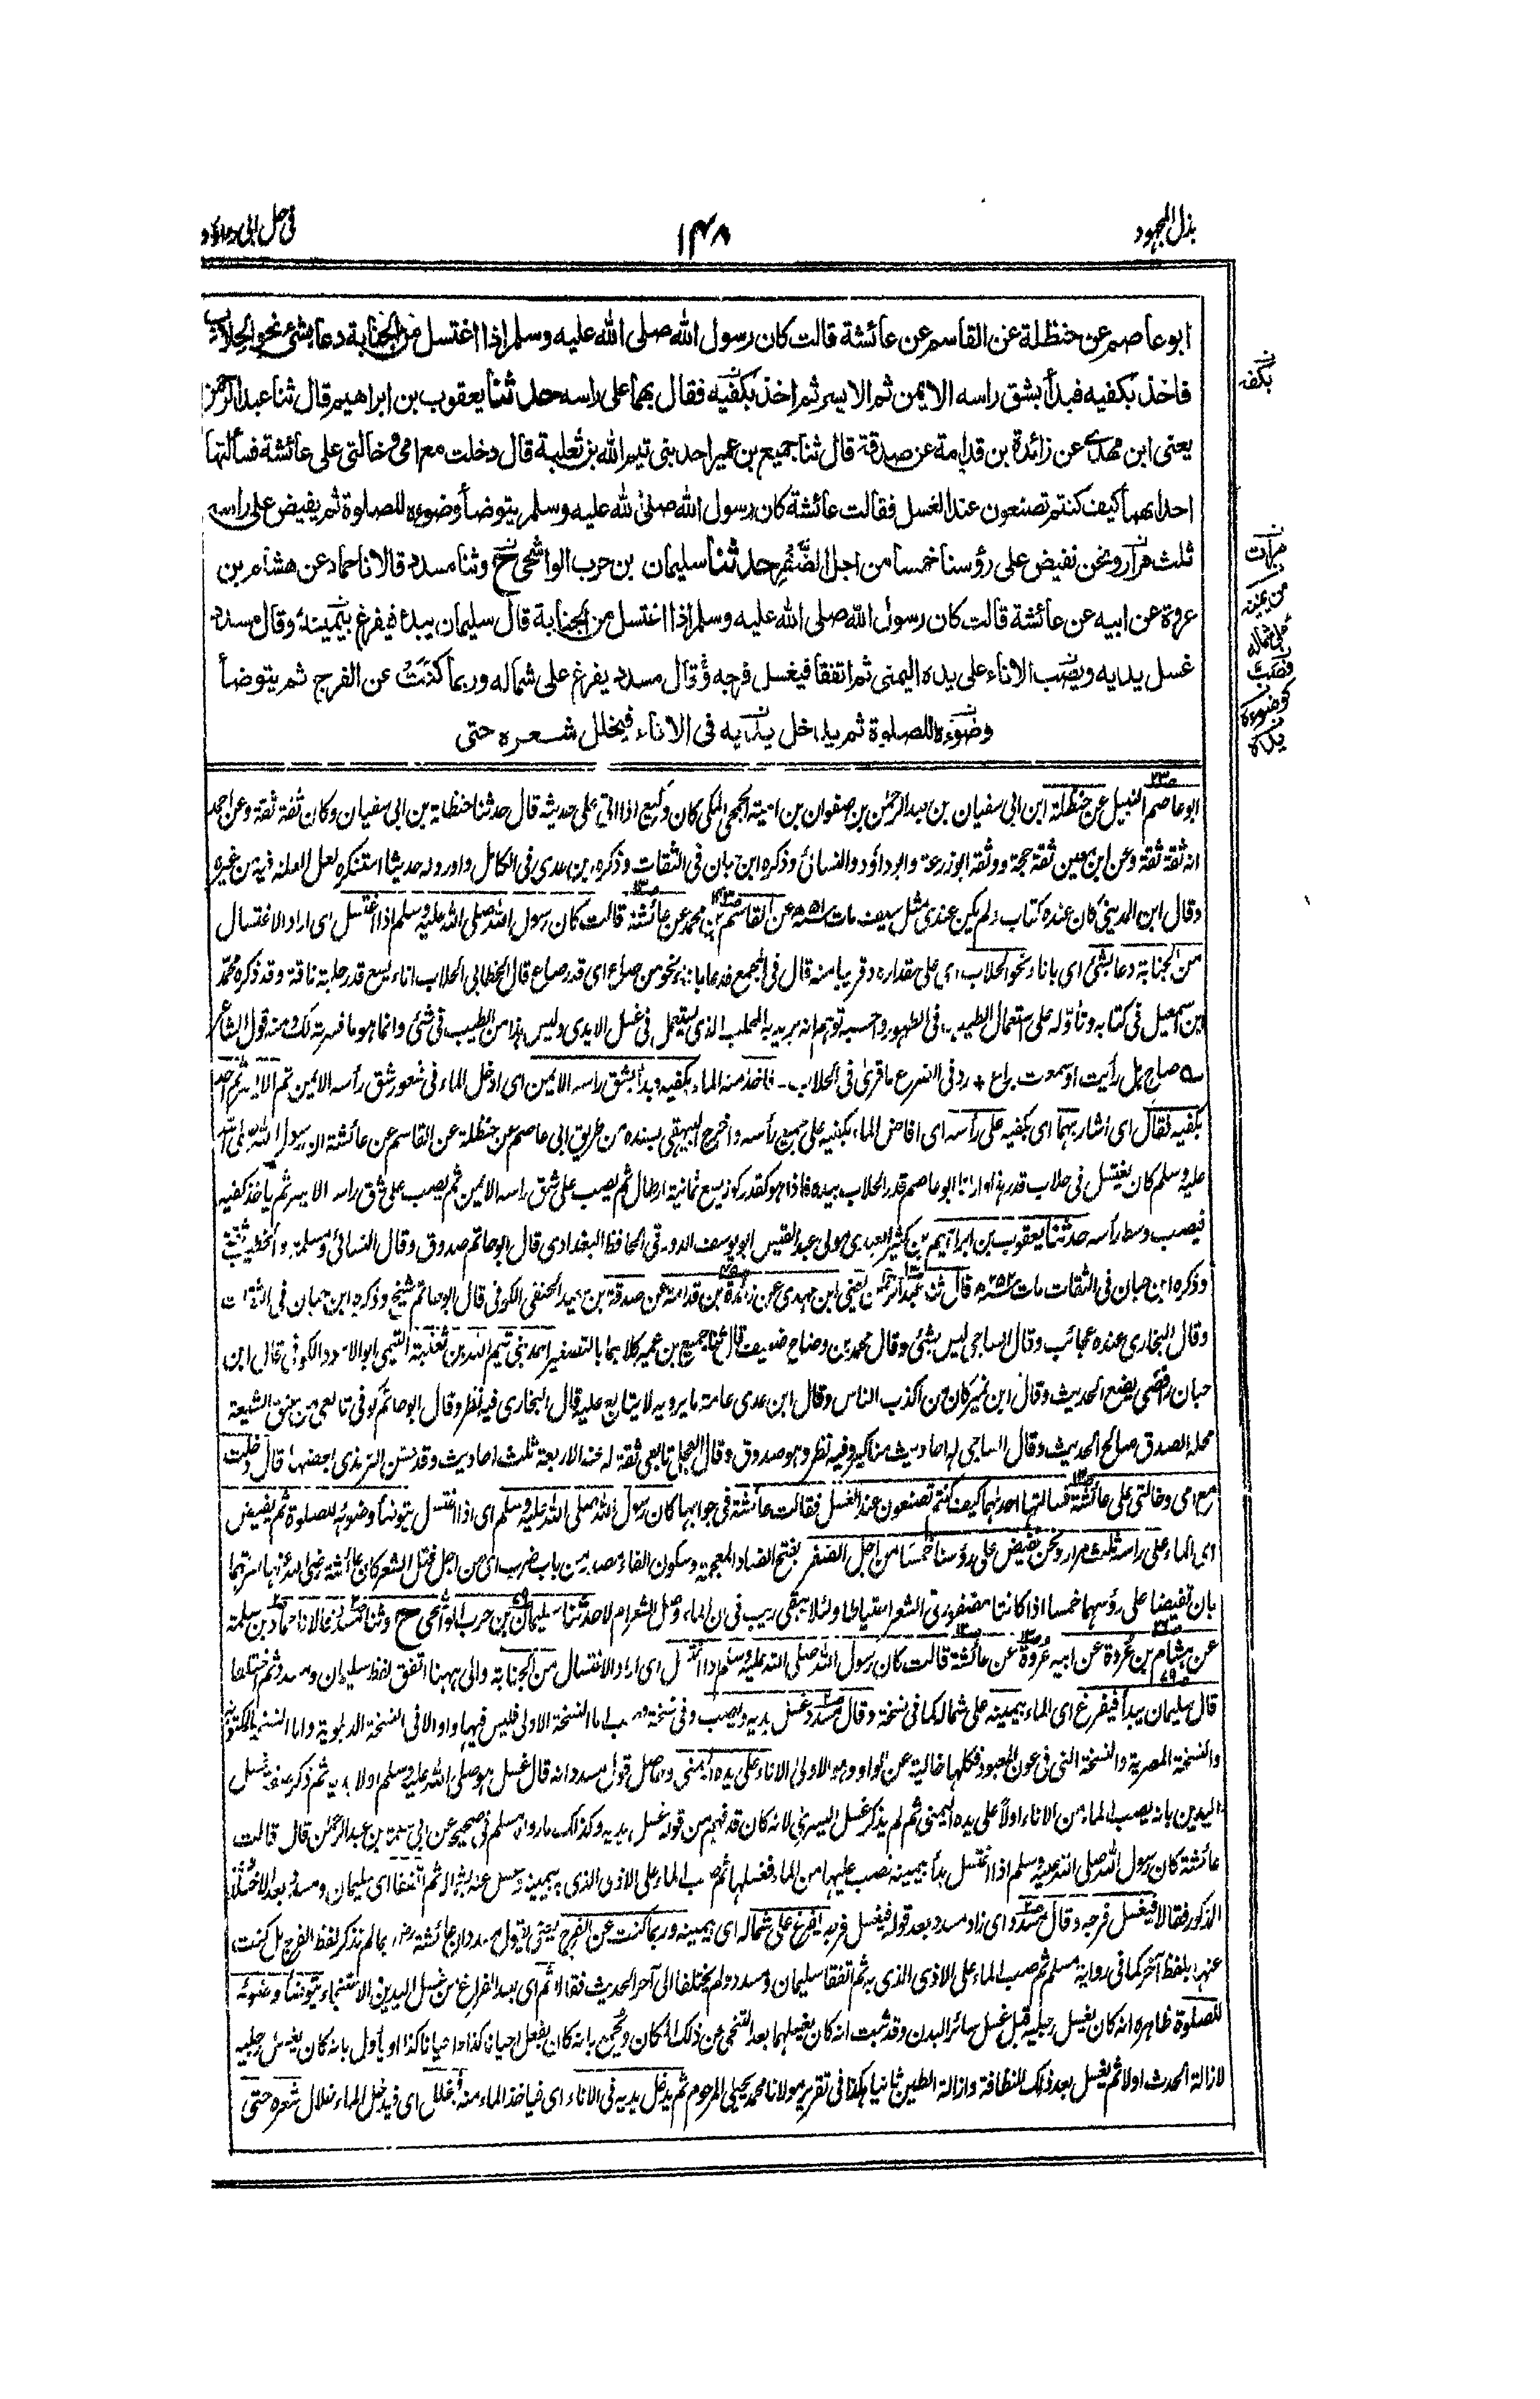 بذل المجهود
١٤٨
فى حل ابى داؤد
ابو عاصم عن حنظلة عن القاسم عن عائشة قالت كان رسول الله صلى الله عليه وسلم اذا اغتسل من الجنابة دعا بشئ نحو الحلاب
فاخذ بكفيه فبدأ بشق راسه الايمن ثم الايسر ثم اخذ بكفيه فقال بهما على راسه حدثنا يعقوب بن ابراهيم قال ثنا عبد الرحمن
يعنى ابن مهدى عن زائدة بن قدامة عن صدقة قال ثنا جميع بن عمير احد بنى تيم الله بن ثعلبة قال دخلت مع امى وخالتى على عائشة فسألتها
احداهما كيف كنتم تصنعون عند الغسل فقالت عائشة كان رسول الله صلى الله عليه وسلم يتوضأ وضوءه للصلوة ثم يفيض على راسه
ثلث مرار ونحن نفيض على رؤسنا خمسا من اجل الضفر حدثنا سليمان بن حرب الواشحى ح وثنا مسدد قالا نا حماد عن هشام بن
عروة عن ابيه عن عائشة قالت كان رسول الله صلى الله عليه وسلم اذا اغتسل من الجنابة قال سليمان يبدأ فيفرغ بيمينه وقال مسدد
غسل يديه ويصب الاناء على يده اليمنى ثم اتفقا فيغسل فرجه وقال مسدد يفرغ على شماله وربما كنت عن الفرج ثم يتوضأ
وضوءه للصلوة ثم يدخل يديه فى الاناء فيخلل شعره حتى
بكفه
مرات
من يمينه
على شماله
فصب
كوضوءه
يده
ابو عاصم النبيل عن حنظلة ابن ابى سفيان بن عبد الرحمن بن صفوان بن امية الجمحى المكى كان وكيع اذا اتى على حديثه قال حدثنا حنظلة بن ابى سفيان وكان ثقة ثقة وعن احمد
انه ثقة ثقة وعن ابن معين ثقة حجة ووثقه ابو زرعة وابو داؤد والنسائى وذكره ابن حبان فى الثقات وذكره ابن عدى فى الكامل واورد له حديثا استنكره لعل العلة فيه من غيره
وقال ابن المدينى كان عنده كتاب ولم يكن عندى مثل سيف مات ١٥١ه عن القاسم بن محمد عن عائشة قالت كان رسول الله صلى الله عليه وسلم اذا اغتسل اى اراد الاغتسال
من الجنابة دعا بشئ اى باناء نحو الحلاب اى على مقداره وقريبا منه قال فى المجمع فدعا باناء نحو من صاع اى قدر صاع قال الخطابى الحلاب اناء يسع قدر حلبة ناقة وقد ذكره محمد
ابن اسمعيل فى كتابه وتأوله على استعمال الطيب فى الطهور واحسبه توهم انه يريد به المحلب الذى يستعمل فى غسل الايدى وليس هذا من الطيب فى شئ وانما هو ما فسرته لك ومنه قول الشاعر
صاح هل رأيت او سمعت براع + رد فى الضرع ما قرى فى الحلاب - فاخذ منه الماء بكفيه وبدأ بشق راسه الايمن اى ادخل الماء فى شعور شق رأسه الايمن ثم الايسر ثم اخذ
بكفيه فقال اى اشار بهما اى بكفيه على رأسه اى افاض الماء بكفيه على جميع رأسه واخرج البيهقى بسنده من طريق ابى عاصم عن حنظلة عن القاسم عن عائشة ان رسول الله صلى الله
عليه وسلم كان يغتسل فى حلاب قدر هذا وارانا ابو عاصم قدر الحلاب بيده فاذا هو كقدر كوز يسع ثمانية ارطال ثم يصب على شق راسه الايمن ثم يصب على شق راسه الايسر ثم يأخذ كفيه
فيصب وسط رأسه حدثنا يعقوب بن ابراهيم بن كثير العبدى مولى عبد القيس ابو يوسف الدورقى الحافظ البغدادى قال ابو حاتم صدوق وقال النسائى ومسلمة والخطيب ثقة
وذكره ابن حبان فى الثقات مات ٢٥٢ه قال ثنا عبد الرحمن يعنى ابن مهدى عن زائدة بن قدامة عن صدقة بن سعيد الحنفى الكوفى قال ابو حاتم شيخ وذكره ابن حبان فى الثقات
وقال البخارى عنده عجائب وقال الساجى ليس بشئ وقال محمد بن وضاح ضعيف قال ثنا جميع بن عمير كلاهما بالتصغير احد بنى تيم الله بن ثعلبة التيمى ابو الاسود الكوفى قال ابن
حبان رافضى يضع الحديث وقال ابن نمير كان من اكذب الناس وقال ابن عدى عامة ما يرويه لا يتابع عليه قال البخارى فيه نظر وقال ابو حاتم كوفى تابعى من عتق الشيعة
محله الصدق صالح الحديث وقال الساجى له احاديث مناكير وفيه نظر وهو صدوق وقال العجلى تابعى ثقة له عند الاربعة ثلث احاديث وقد حسن الترمذى بعضها قال دخلت
مع امى وخالتى على عائشة فسألتها احداهما كيف كنتم تصنعون عند الغسل فقالت عائشة فى جوابها كان رسول الله صلى الله عليه وسلم اى اذا اغتسل يتوضأ وضوئه للصلوة ثم يفيض
اى الماء على راسه ثلث مرار ونحن نفيض على رؤسنا خمسا من اجل الضفر بفتح الضاد المعجمة وسكون الفاء مصدر من باب ضرب اى من اجل فتل الشعر كان عائشة رضى الله عنها امرتهما
بان تفيضا على رؤسهما خمسا اذا كانتا مضفورتى الشعر احتياطا ولئلا يبقى ريب فى ان الماء وصل الشعر ام لا حدثنا سليمان بن حرب الواشحى ح وثنا مسدد قالا نا حماد بن سلمة
عن هشام بن عروة عن ابيه عروة عن عائشة قالت كان رسول الله صلى الله عليه وسلم اذا اغتسل اى اراد الاغتسال من الجنابة والى ههنا اتفق لفظ سليمان ومسدد ثم اختلفا
قال سليمان يبدأ فيفرغ اى الماء بيمينه على شماله كما فى نسخة وقال مسدد غسل يديه ويصب وفى نسخة فصب اما النسخة الاولى فليس فيها واو الا فى النسخة الدهلوية واما النسخ المكتوبة
والنسخة المصرية والنسخة التى فى عون المعبود فكلها خالية عن الواو وهو الاولى الاناء على يده اليمنى وحاصل قول مسدد انه قال غسل هو صلى الله عليه وسلم اولا يديه ثم ذكر صفة غسل
اليدين بانه يصب الماء من الاناء اولا على يده اليمنى ثم لم يذكر غسل اليسرى لانه كان قد فهم من قوله غسل يديه وكذلك ما رواه مسلم فى صحيحه عن ابى سلمة بن عبد الرحمن قال قالت
عائشة كان رسول الله صلى الله عليه وسلم اذا اغتسل بدأ بيمينه فصب عليها من الماء فغسلها ثم صب الماء على الاذى الذى به بيمينه وغسل عنه بشماله ثم اتفقا اى سليمان ومسدد بعد الاختلاف
المذكور فقالا فيغسل فرجه وقال مسدد اى زاد مسدد بعد قوله فيغسل فرجه يفرغ على شماله اى بيمينه وربما كنت عن الفرج يعنى يقول مسدد ان عائشة رضـ ربما لم تذكر لفظ الفرج بل كنت
عنها بلفظ آخر كما فى رواية مسلم ثم صب الماء على الاذى الذى به ثم اتفقا سليمان ومسدد ولم يختلفا الى آخر الحديث فقالا ثم اى بعد الفراغ من غسل اليدين والاستنجاء يتوضأ وضوئه
للصلوة ظاهره انه كان يغسل رجليه قبل غسل سائر البدن وقد ثبت انه كان يغسلهما بعد التنحى عن ذلك المكان ويجمع بانه كان يفعل احيانا كذا واحيانا كذا او يأول بانه كان يغسل رجليه
لازالة الحدث اولا ثم يغسل بعد ذلك للنظافة وازالة الطين ثانيا هكذا فى تقرير مولانا محمد يحيى المرحوم ثم يدخل يديه فى الاناء اى فيأخذ الماء منه فيخلل اى فيدخل الماء خلال شعره حتى